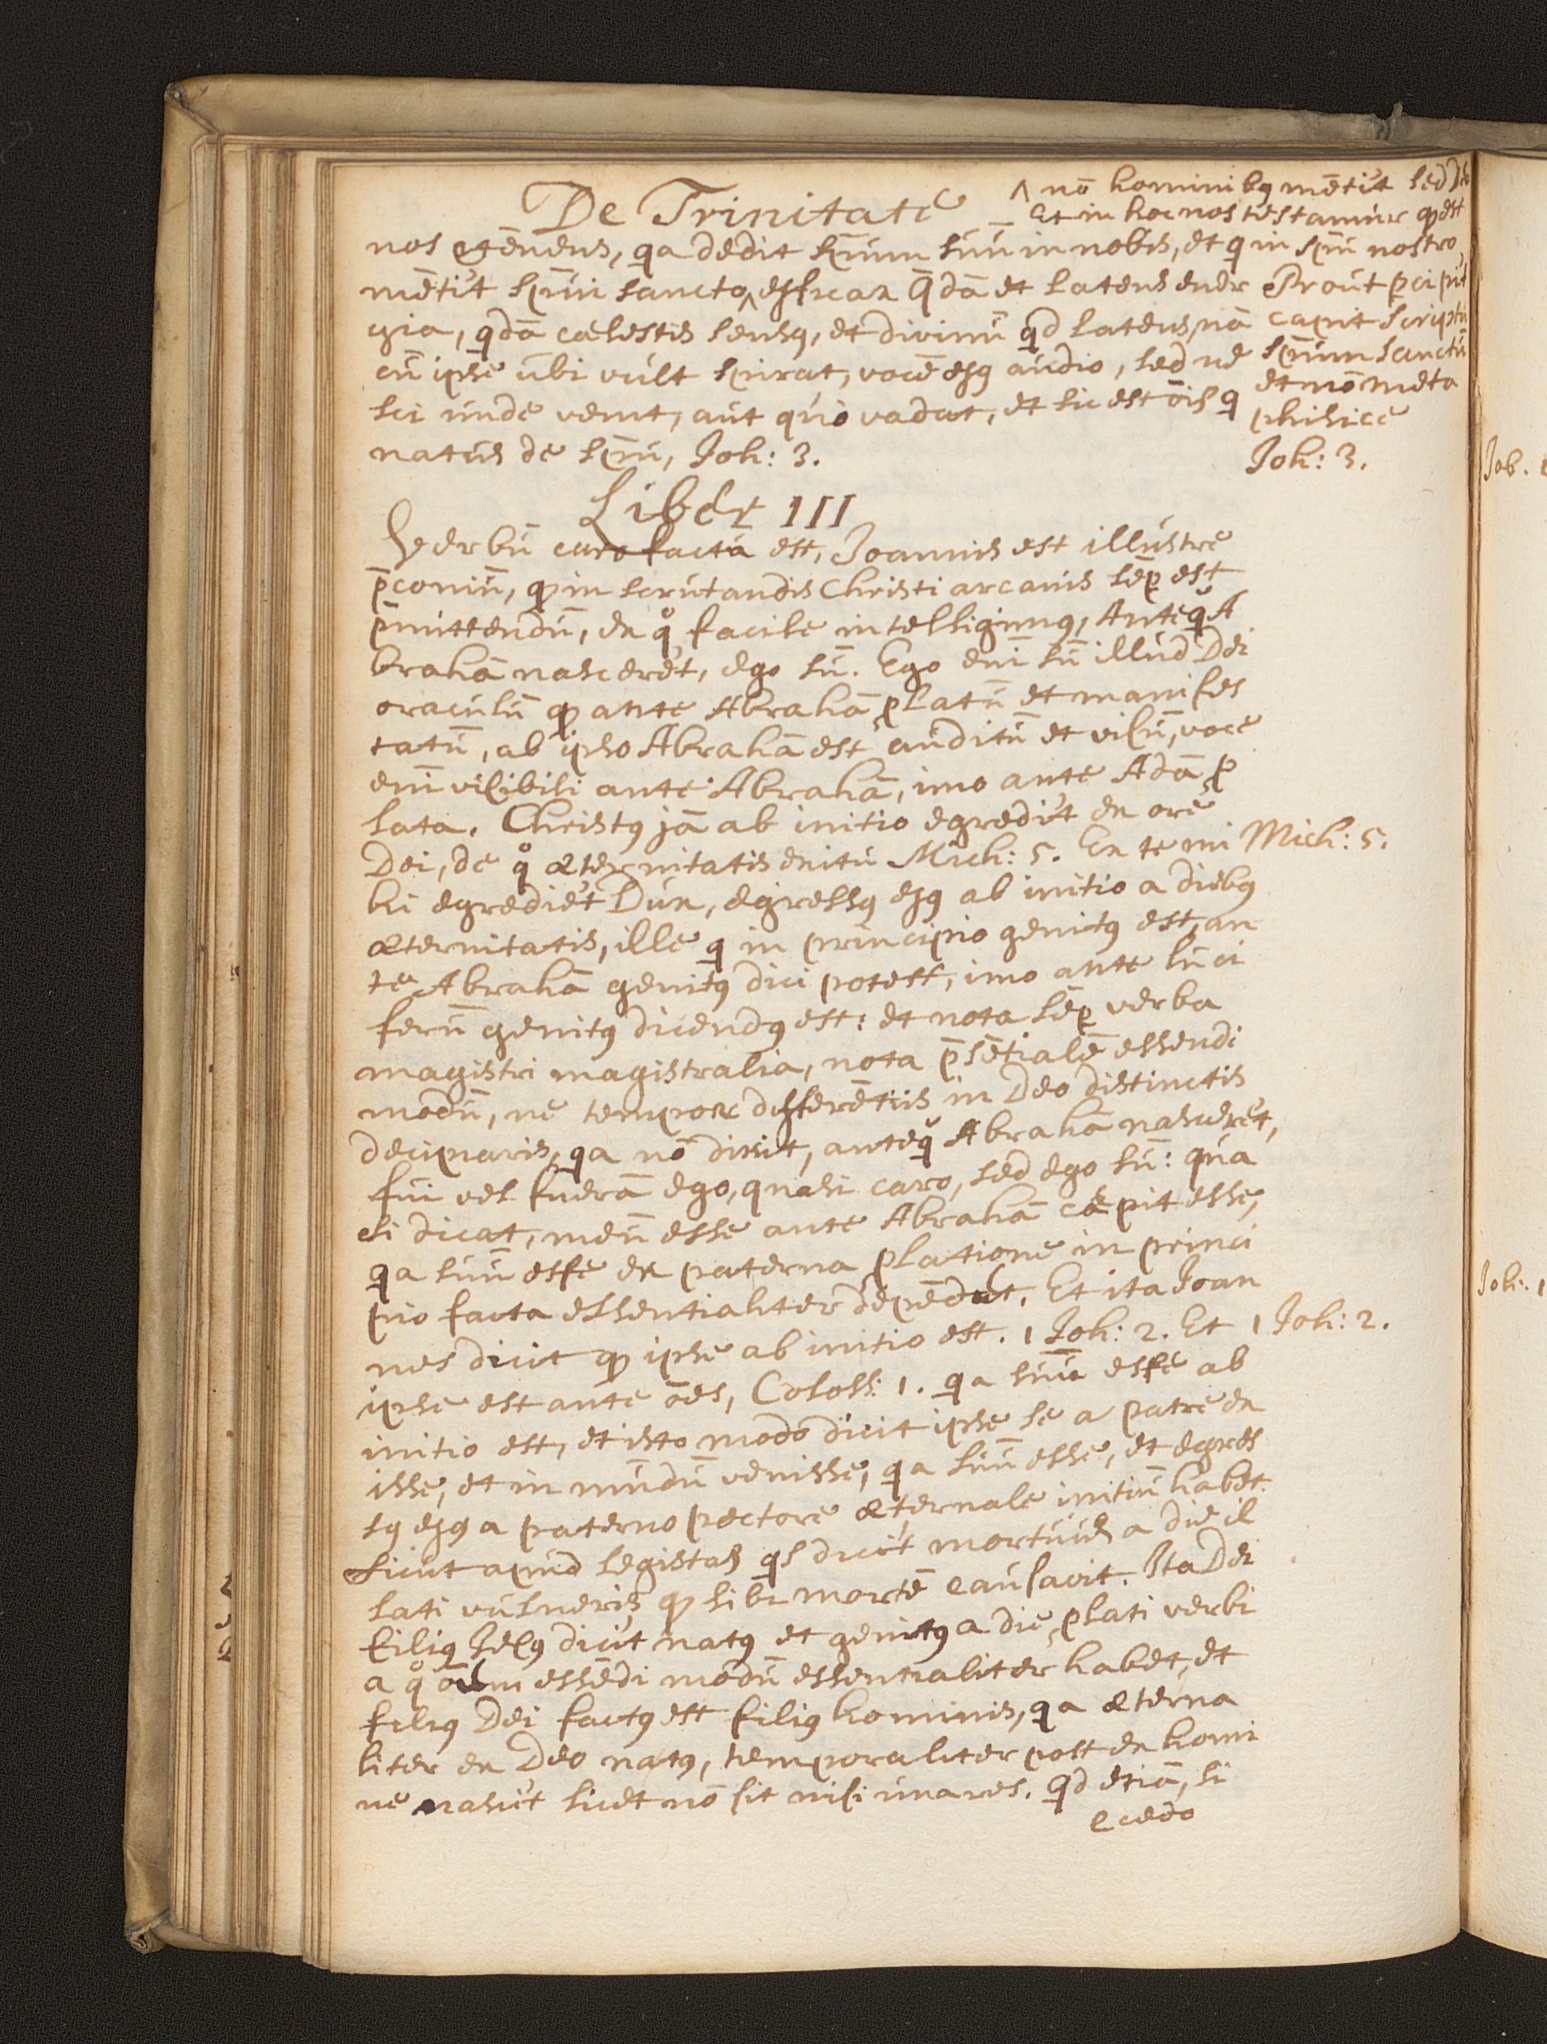 De Trinitate
^ nō hominibꝰ mētit᷑ sed Deo
Et in hoc nos testamur ꝙ est
nos ostēdens, qa dedit sp̄um suū in nobis, et q in sp̄u nostro
mētit᷑ sp̄ui sancto, ^ efficax q̄dā et latens ener
gia, q̄dā cælestis sensꝰ, et divinū qd latens, nā
cū ipse ubi vult spirat, vocē ejꝰ audio, sed ne
sci unde venit, aut quo vadat, et sic est ōis q
natus de sp̄u, Joh: 3.
Prout p̱cipit᷑
capit scriptū
sp̄um sanctū
et nō meta
phisice
Joh: 3.
Liber III
Verbū caro factū est, Joannis est illustre
p̄coniū, ꝙ in scrutandis Christi arcanis sēp̱ est
p̄mittendū, ex qͦ facile intelligimꝰ, Anteq̄ A
brahā nasceret᷑, ego sū. Ego enī sū illud Dei
oraculū ꝙ ante Abrahā ꝓlatū et manifes
tatū, ab ipso Abrahā est auditū et visū, voce
enī visibili ante Abrahā, imo ante Adā ꝓ
lata. Christꝰ jā ab initio egredit᷑ ex ore
Dei, de qͦ æternitatis exitu Mich: 5. Ex te mi
Mich: 5.
hi egrediet᷑ Dux, egressꝰ ejꝰ ab initio a diebꝰ
æternitatis, ille q in principio genitꝰ est, an
te Abrahā genitꝰ dici potest, imo ante luci
ferū genitꝰ dicendꝰ est: et nota sēp̱ verba
magistri magistralia, nota p̄sētialē essendi
modū, ne tempoꝝ differētiis in Deo distinctis
deciparis, qa nō dixit, anteq̄ Abrahā nasceret᷑,
fui vel fuerā ego, quasi caro, sed ego sū: qua
si dicat, meū esse ante Abrahā cæpit esse,
qa suū esse ex paterna ꝓlatione in princi
pio facta essentialiter depēdet. Et ita Joan
nes dicit ꝙ ipse ab initio est. 1 Joh: 2. Et
1 Joh: 2.
ipse est ante ōes, Coloss: 1. qa suū esse ab
initio est, et isto modo dicit ipse se a patre ex
isse, et in mūdū venisse, qa suū esse, et egres
sꝰ ejꝰ a paterno pectore æternale initiū habet.
Sicut apud legistas qs dicit᷑ mortuus a die il
lati vulneris, ꝙ sibi mortē causavit. Ita Dei
filiꝰ Jesꝰ dicit᷑ natꝰ et genitꝰ a die ꝓlati verbi
a qͦ ōem essēdi modū essentialiter habet, et
filiꝰ Dei factꝰ est filiꝰ hominis, qa æterna
liter ex Deo natꝰ, temporaliter post ex homi
ne nascit᷑ licet nō sit nisi una res. qd etiā, si
Job.
Joh: 1